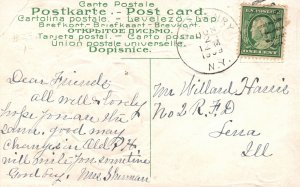 Carte Postale
Postkarte - Post card.
Cartolina postale. - Levelező-Lap.
Brefkort - Briefkaart - Brevkort.
ОТКРЫТОЕ ПИСЬМО.
Tarjeta postal. - Carto postal
Union postale universelle.
Dopisnice.
N.Y.
Dear Friends
all well & lovely
hope you are the
same. good
Changes in Old
will write you sometime
Good by. Mrs. Sherman
Mr Willard Harris
No 2 R.F.D
Sena
Ill